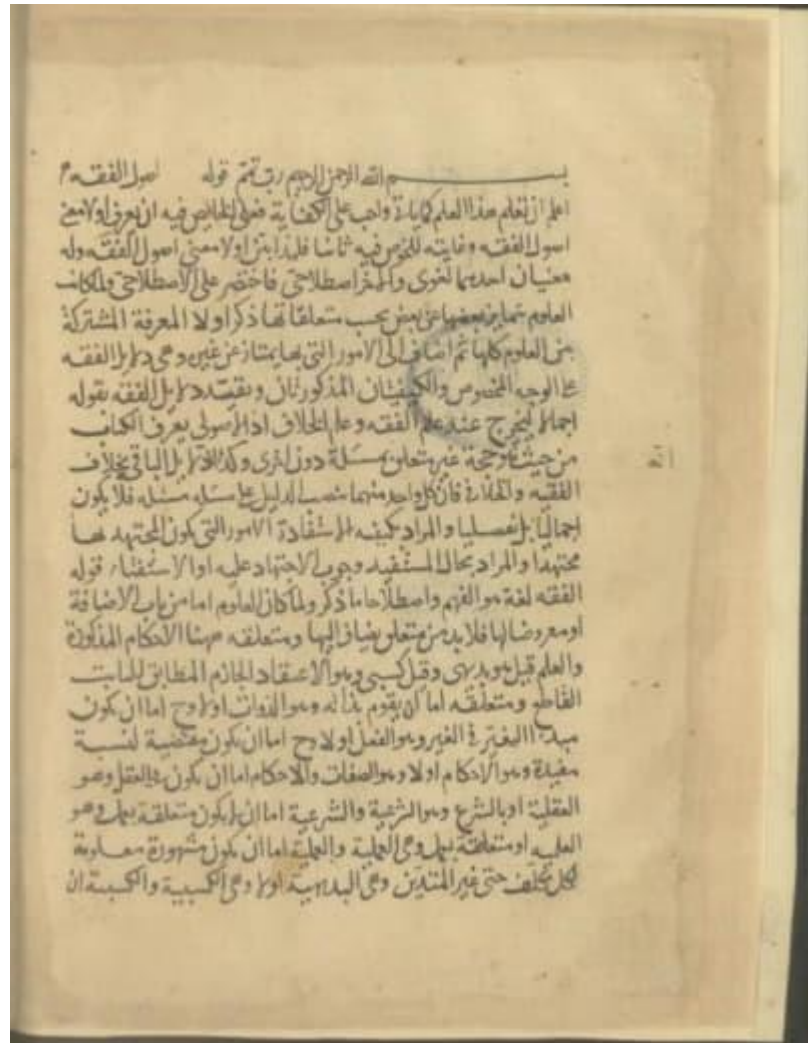 بسم الله الرحمن الرحيم رب تمم قوله اصول الفقه
اعلم ان تعلم هذا العلم كما يأتي واجب على الكفاية فعلى الخايض فيه ان يعرف اولا معنى
اصول الفقه وغايته للخوض فيه ثانيا فلذا بين اولا معنى اصول الفقه وله
معنيان احدهما لغوى والاخر اصطلاحى فاختصر على الاصطلاحى ولما كانت
العلوم تمايز بعضها عن بعض بحسب متعلقاتها ذكر اولا المعرفة المشتركة
بين العلوم كلها ثم اضاف الى الامور التى بها يمتاز عن غيره وهى دلايل الفقه
على الوجه المخصوص والكيفيتان المذكورتان وتقييد دلايل الفقه بقوله
اجمالا ليخرج عنه علم الفقه وعلم الخلاف اذ الاصولى يعرف الكتاب
من حيث هو حجة غير متعلق بمسئلة دون اخرى وكذا الدلايل الباقى بخلاف
الفقيه فان كل واحد منهما نصب الدليل على مسئلة مسئلة فلا يكون
اجماليا بل تفصيليا والمراد بكيفية الاستفادة الامور التى يكون المجتهد بها
مجتهدا والمراد بحال المستفيد وجوب الاجتهاد عليه او الاستفتاء قوله
الفقه لغة هو الفهم واصطلاحا ما ذكر ولما كان العلوم اما من باب الاضافة
او معروضا لها فلا بد من متعلق يضاف اليها ومتعلقه ههنا الاحكام المذكورة
والعلم قيل هو بديهى وقيل كسبى وهو الاعتقاد الجازم المطابق الثابت
القاطع ومتعلقه اما ان يقوم بذاته وهو الذوات اولا وح اما ان يكون
مبدءا للتغير فى الغير وهو الفعل اولا وح اما ان يكون مقتضية لنسبة
مفيدة وهو الاحكام اولا وهو الصفات والاحكام اما ان يكون بالعقل وهو
العقلية او بالشرع وهو الشرعية والشرعية اما ان لا يكون متعلقة بعمل وهو
العلمية او متعلقة بعمل وهى العملية والعملية اما ان يكون مشهورة معلومة
لكل مكلف حتى غير المتدين وهى البديهية اولا وهى الكسبية والكسبية ان